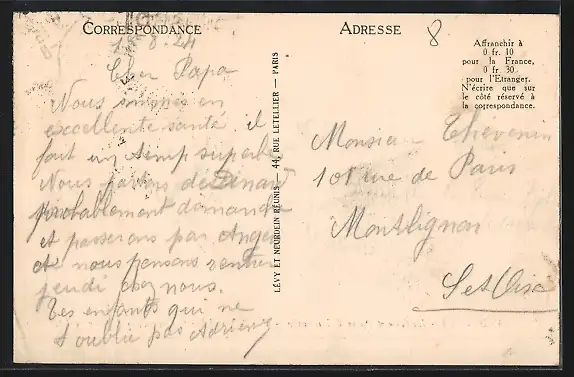 CORRESPONDANCE
18-8-24
Cher Papa
Nous sommes en
excellente santé il
fait un temp superbe
Nous partons de Dinard
probablement demanche
et passerons par Anger
et nous pensons rentrer
jeudi chez nous.
Tes enfants qui ne
t'oublie pas Adrien
LÉVY ET NEURDEIN RÉUNIS — 44, RUE LETELLIER — PARIS
ADRESSE
8
Affranchir à
0 fr. 10
pour la France,
0 fr 30
pour l'Etranger.
N'écrire que sur
le côté réservé à
la correspondance.
Monsieur Thévenin
101 rue de Paris
Montlignon
S et Oise